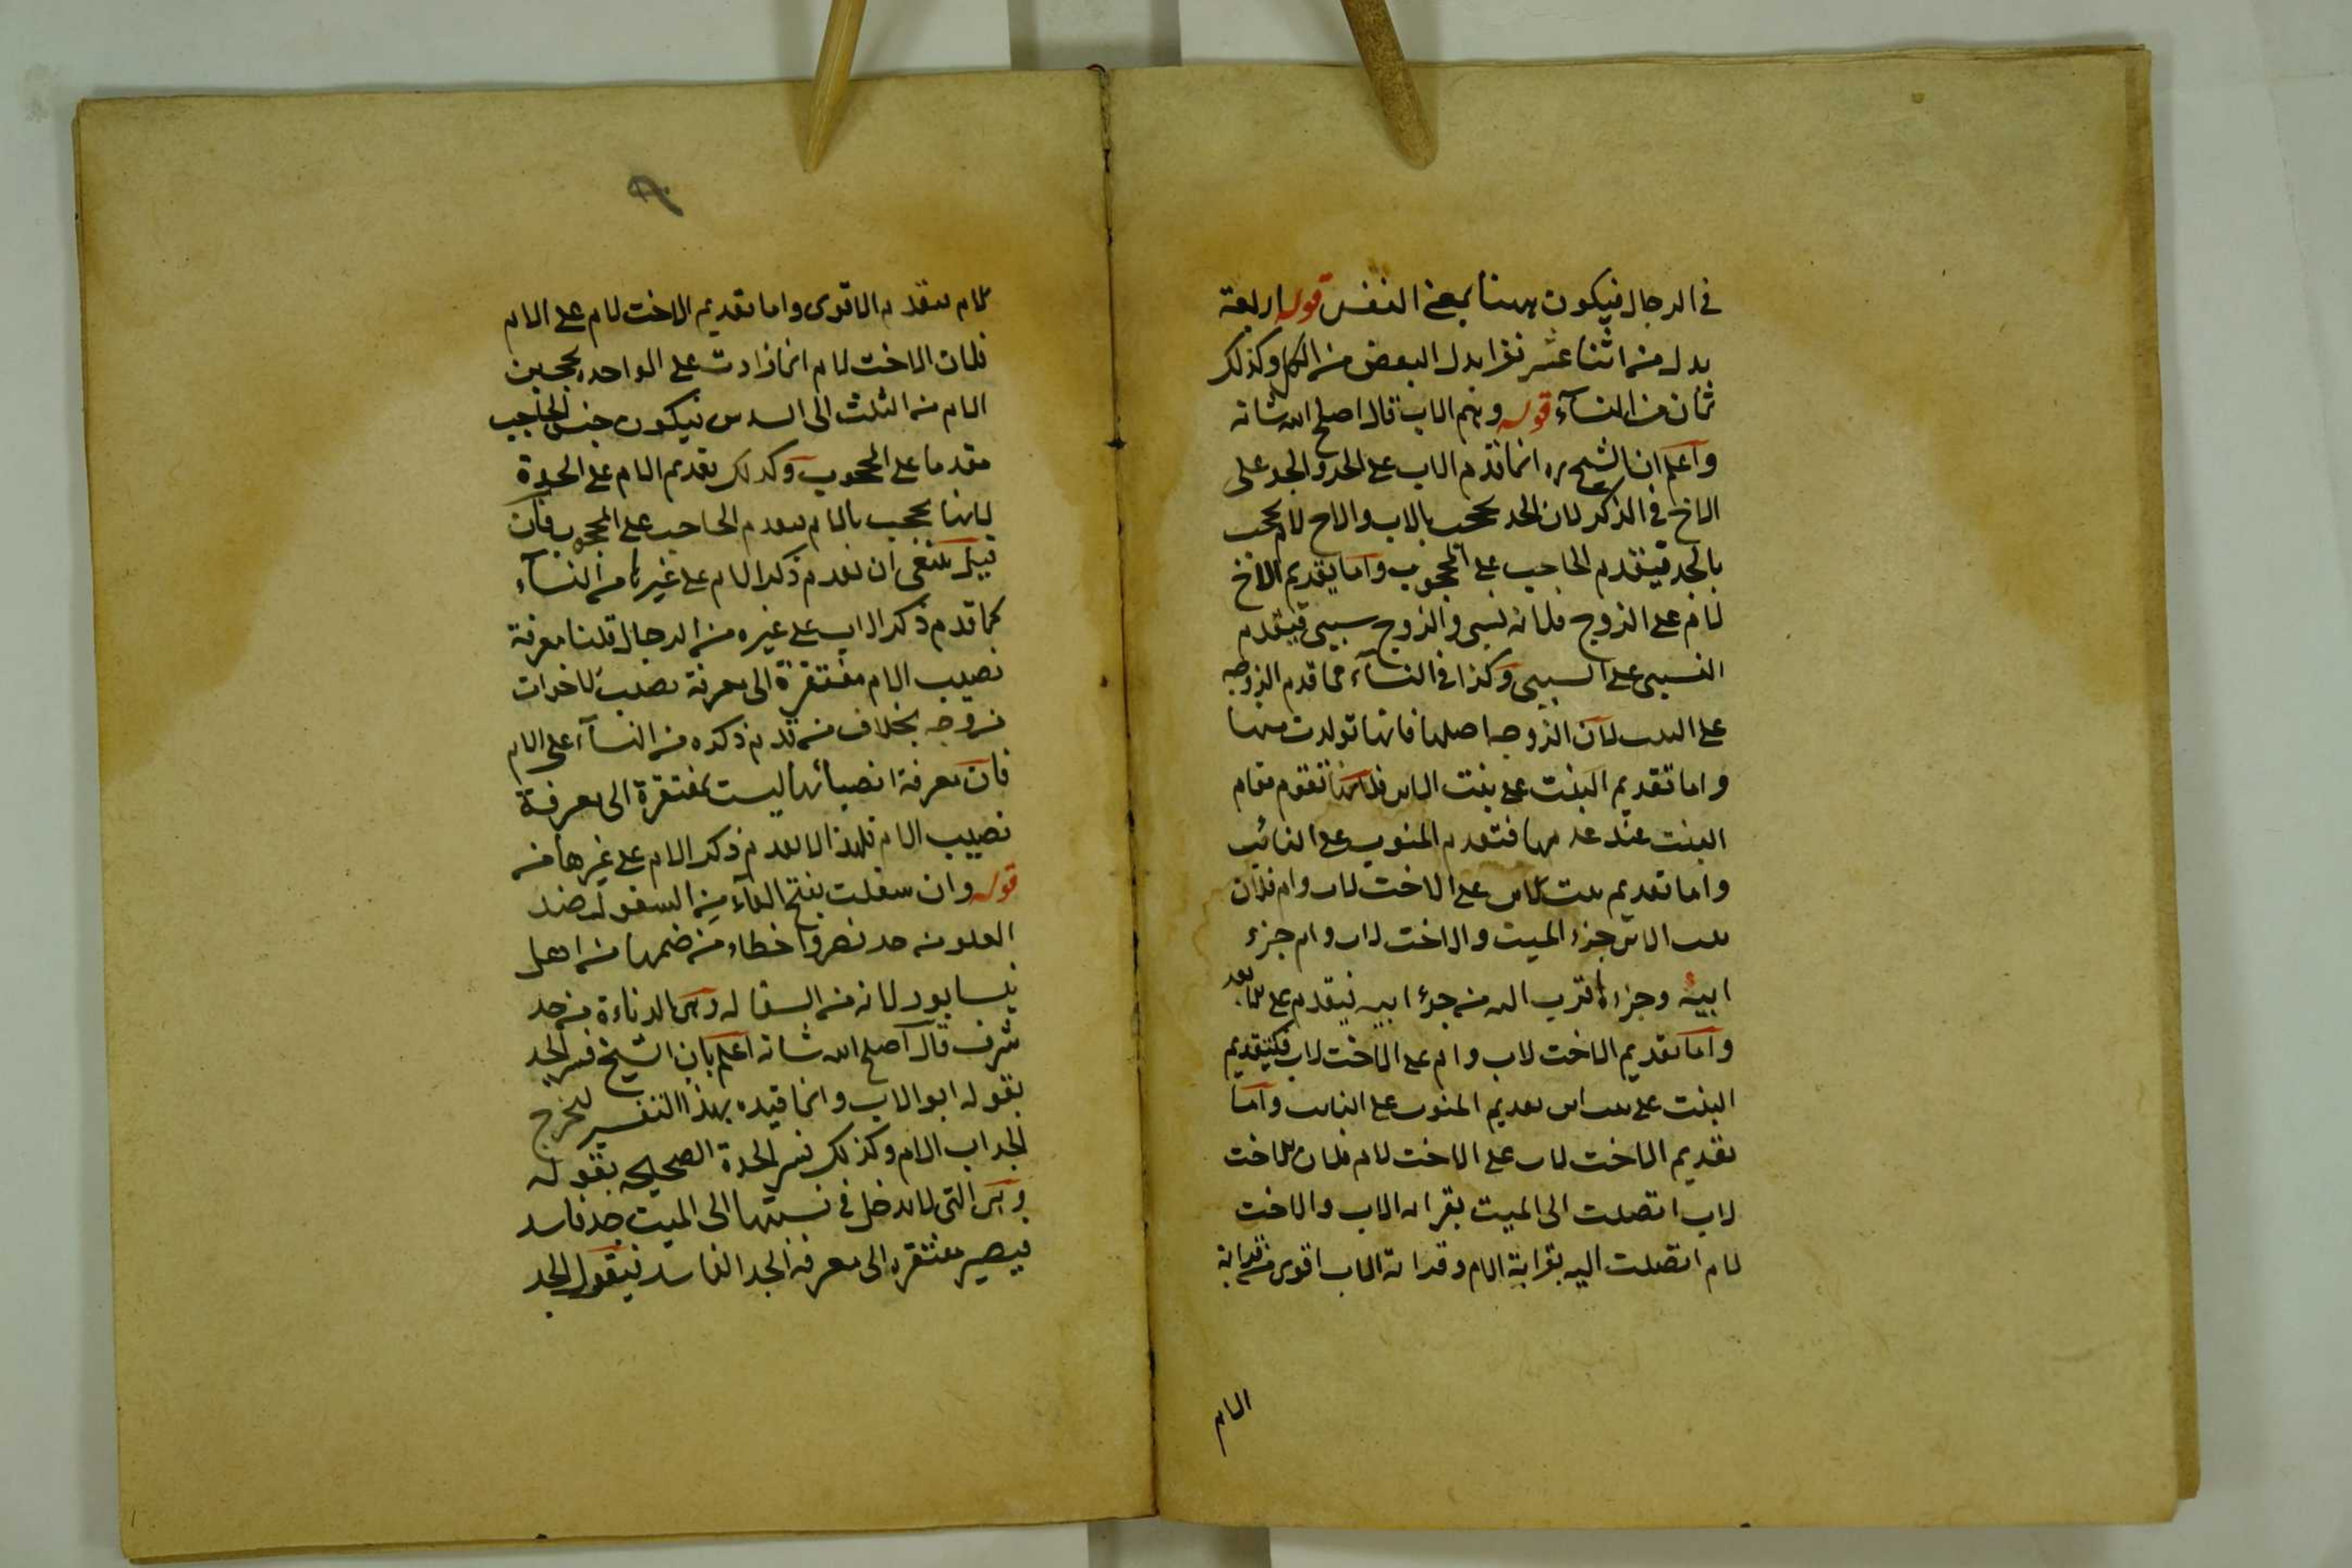 في الرجال فيكون ههنا بمعنى النفس قوله اربعة
بدل من اثنا عشر نفرا بدل البعض من الكل وكذلك
ثمان من النسآء قوله وهم الاب قال اصلح الله شانه
واعلم ان الشيخ ره انما قدم الاب على الجد والجد على
الاخ في الذكر لان الجد يحجب بالاب والاخ لام يحجب
بالجد فيتقدم الحاجب على المحجوب واما يقديم الاخ
لام على الزوج فلانه نسبى والزوج سببى فيتقدم
النسبى على السببى وكذا في النسآء مما قدم الزوجه
على البنت لان الزوجه اصلها فانها تولدت منها
واما تقديم البنت على بنت الابن فلانها تقوم مقام
البنت عند عدمها فتقدم المنوب على النائب
واما تقديم بنت الابن على الاخت لاب وام فلان
بنت الابن جزء الميت والاخت لاب وام جزء
ابيه وجزءه اقرب اليه من جزء ابيه فيتقدم على
واما تقديم الاخت لاب وام على الاخت لاب فكتقديم
البنت على بنت ابن تقديم المنوب على النايب واما
تقديم الاخت لاب على الاخت لام فلان الاخت
لاب اتصلت الى الميت بقرابه الاب والاخت
لام اتصلت اليه بقرابة الام وقرابة الاب اقوى من قرابة
الام
الام فيتقدم الاقوى واما تقديم الاخت لام على الام
فلان الاخت لام اذا زادت على الواحده يحجبن
الام من الثلث الى السدس فيكون جنس الحاجب
مقدما على المحجوب وكذلك تقديم الام على الجدة
لانها يحجب بالام فيقدم الحاجب على المحجوب فان
قيل ينبغى ان يقدم ذكر الام على غيرها من النسآء
كما قدم ذكر الاب على غيره من الرجال قلنا معرفة
نصيب الام مفتقرة الى معرفة نصيب الاخوات
بخلاف من قدم ذكره من النسآء على الام
فان معرفة انصبائها ليست بمفتقرة الى معرفة
نصيب الام فلهذا لا يقدم ذكر الام على غيرها منه
قوله وان سفلت بفتح الفآء من السفول ضد
العلو من حد نصر واخطاء من ضمها من اهل
نيسابور لانه من السفاله وهى الدناءة من حد
شرف قال اصلح الله شانه اعلم بان الشيخ فسر الجد
بقوله ابو الاب وانما قيده بهذا التفسير ليخرج
الجد اب الام وكذلك فسر الجدة الصحيحه بقوله
وهى التى لا يدخل في نسبتها الى الميت جد فاسد
فيصير مفتقره الى معرفه الجد الفاسد فيقول الجد